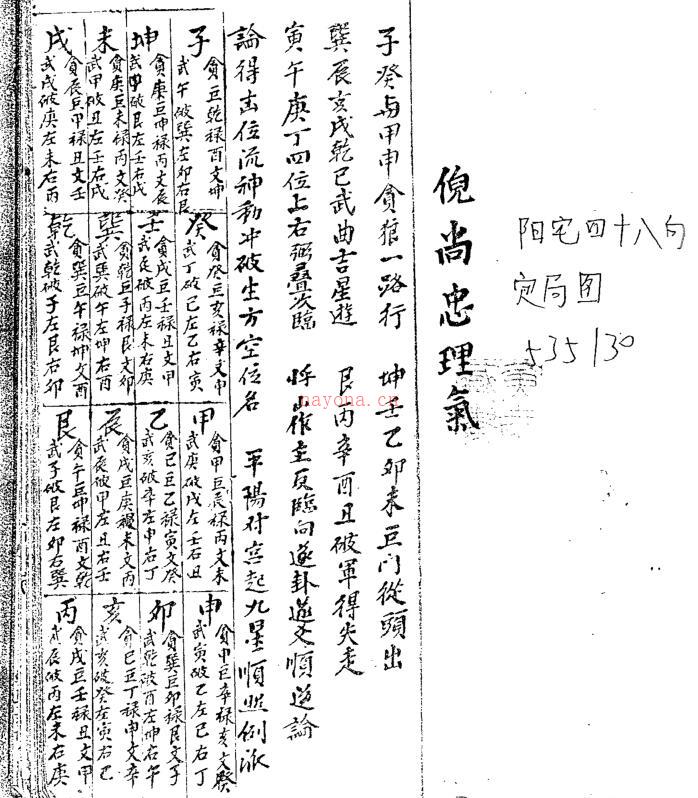 阳宅四十八向
定局图
535130
倪尚忠理氣
子癸与甲申貪狼一路行 坤壬乙卯未巨门從頭出
巽辰亥戌乾巳武曲吉星遊 艮丙辛酉丑破軍得失走
寅午庚丁四位上右弼叠次臨 作主反臨向逐卦逆爻順逆論
論得出位流神動冲破生方空位名 平陽对宮起九星順照例派
子
貪巨乾禄酉文坤
武午破巽左卯右艮
癸
貪癸巨亥禄辛文申
武丁破巳左乙右寅
甲
貪甲巨辰禄丙文未
武庚破戌左壬右丑
申
貪申巨辛禄亥文癸
武寅破乙左巳右丁
坤
貪庚巨坤禄丙文辰
武甲破艮左壬右戌
壬
貪戌巨壬禄丑文甲
武辰破丙左未右庚
乙
貪巳巨乙禄寅文癸
武亥破辛左申右丁
卯
貪巽巨卯禄艮文子
武乾破酉左坤右午
未
貪庚巨未禄丙文癸
武甲破丑左壬右戌
巽
貪乾巨子禄艮文卯
武巽破午左坤右酉
辰
貪戌巨庚禄未文丙
武辰破甲左丑右壬
亥
貪巳巨丁禄申文辛
武亥破癸左寅右巳
戌
貪辰巨甲禄丑文壬
武戌破庚左未右丙
乾
貪巽巨午禄坤文酉
武乾破子左艮右卯
艮
貪午巨坤禄酉文乾
武子破艮左卯右巽
丙
貪戌巨壬禄丑文甲
武辰破丙左未右庚
nayona.cn